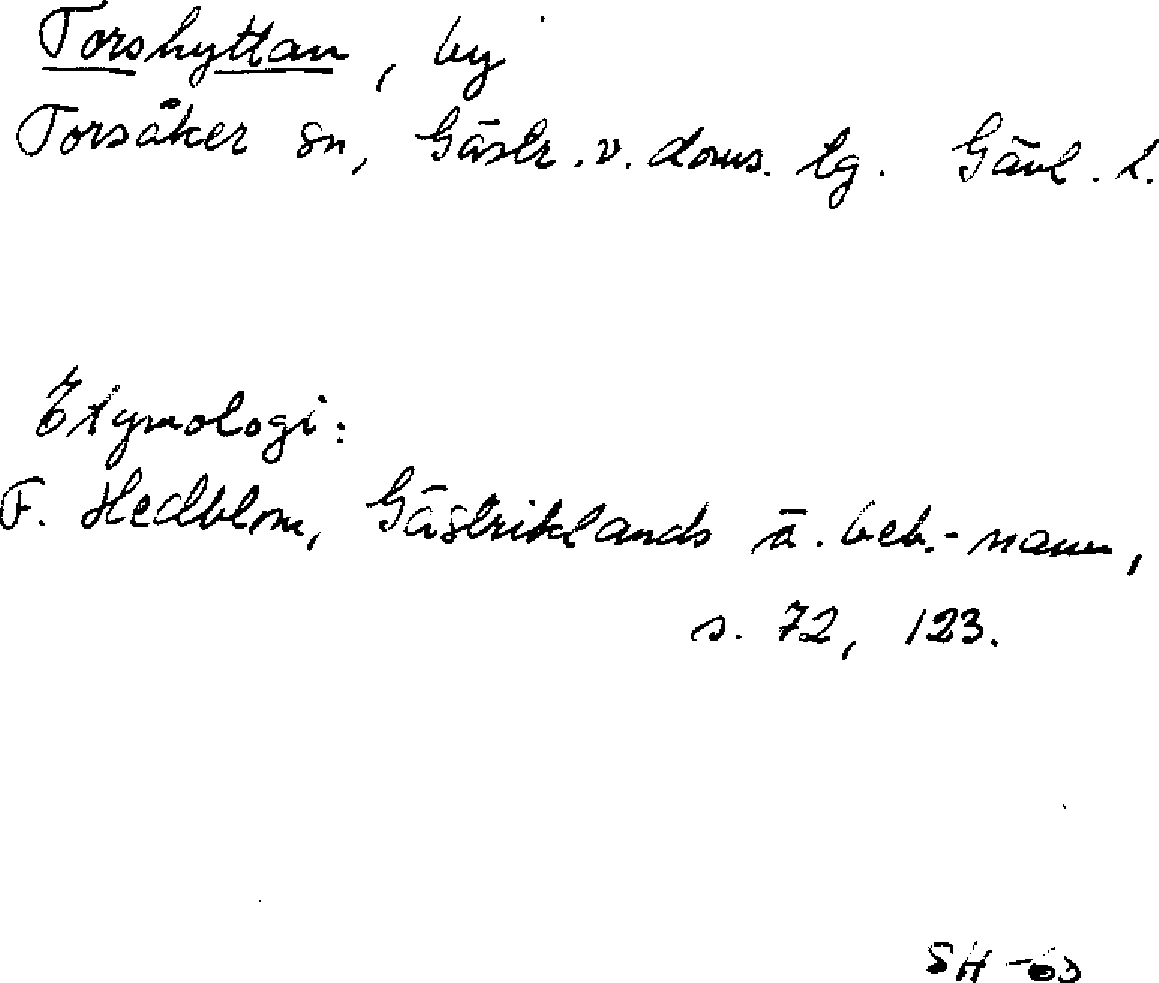 Torshyttan, by
Torsåker sn, Gästr. v. doms. lg. Gävl. l.
Etymologi:
F. Hedblom, Gästriklands ä. beb.-namn,
s. 72, 123.
SH -63